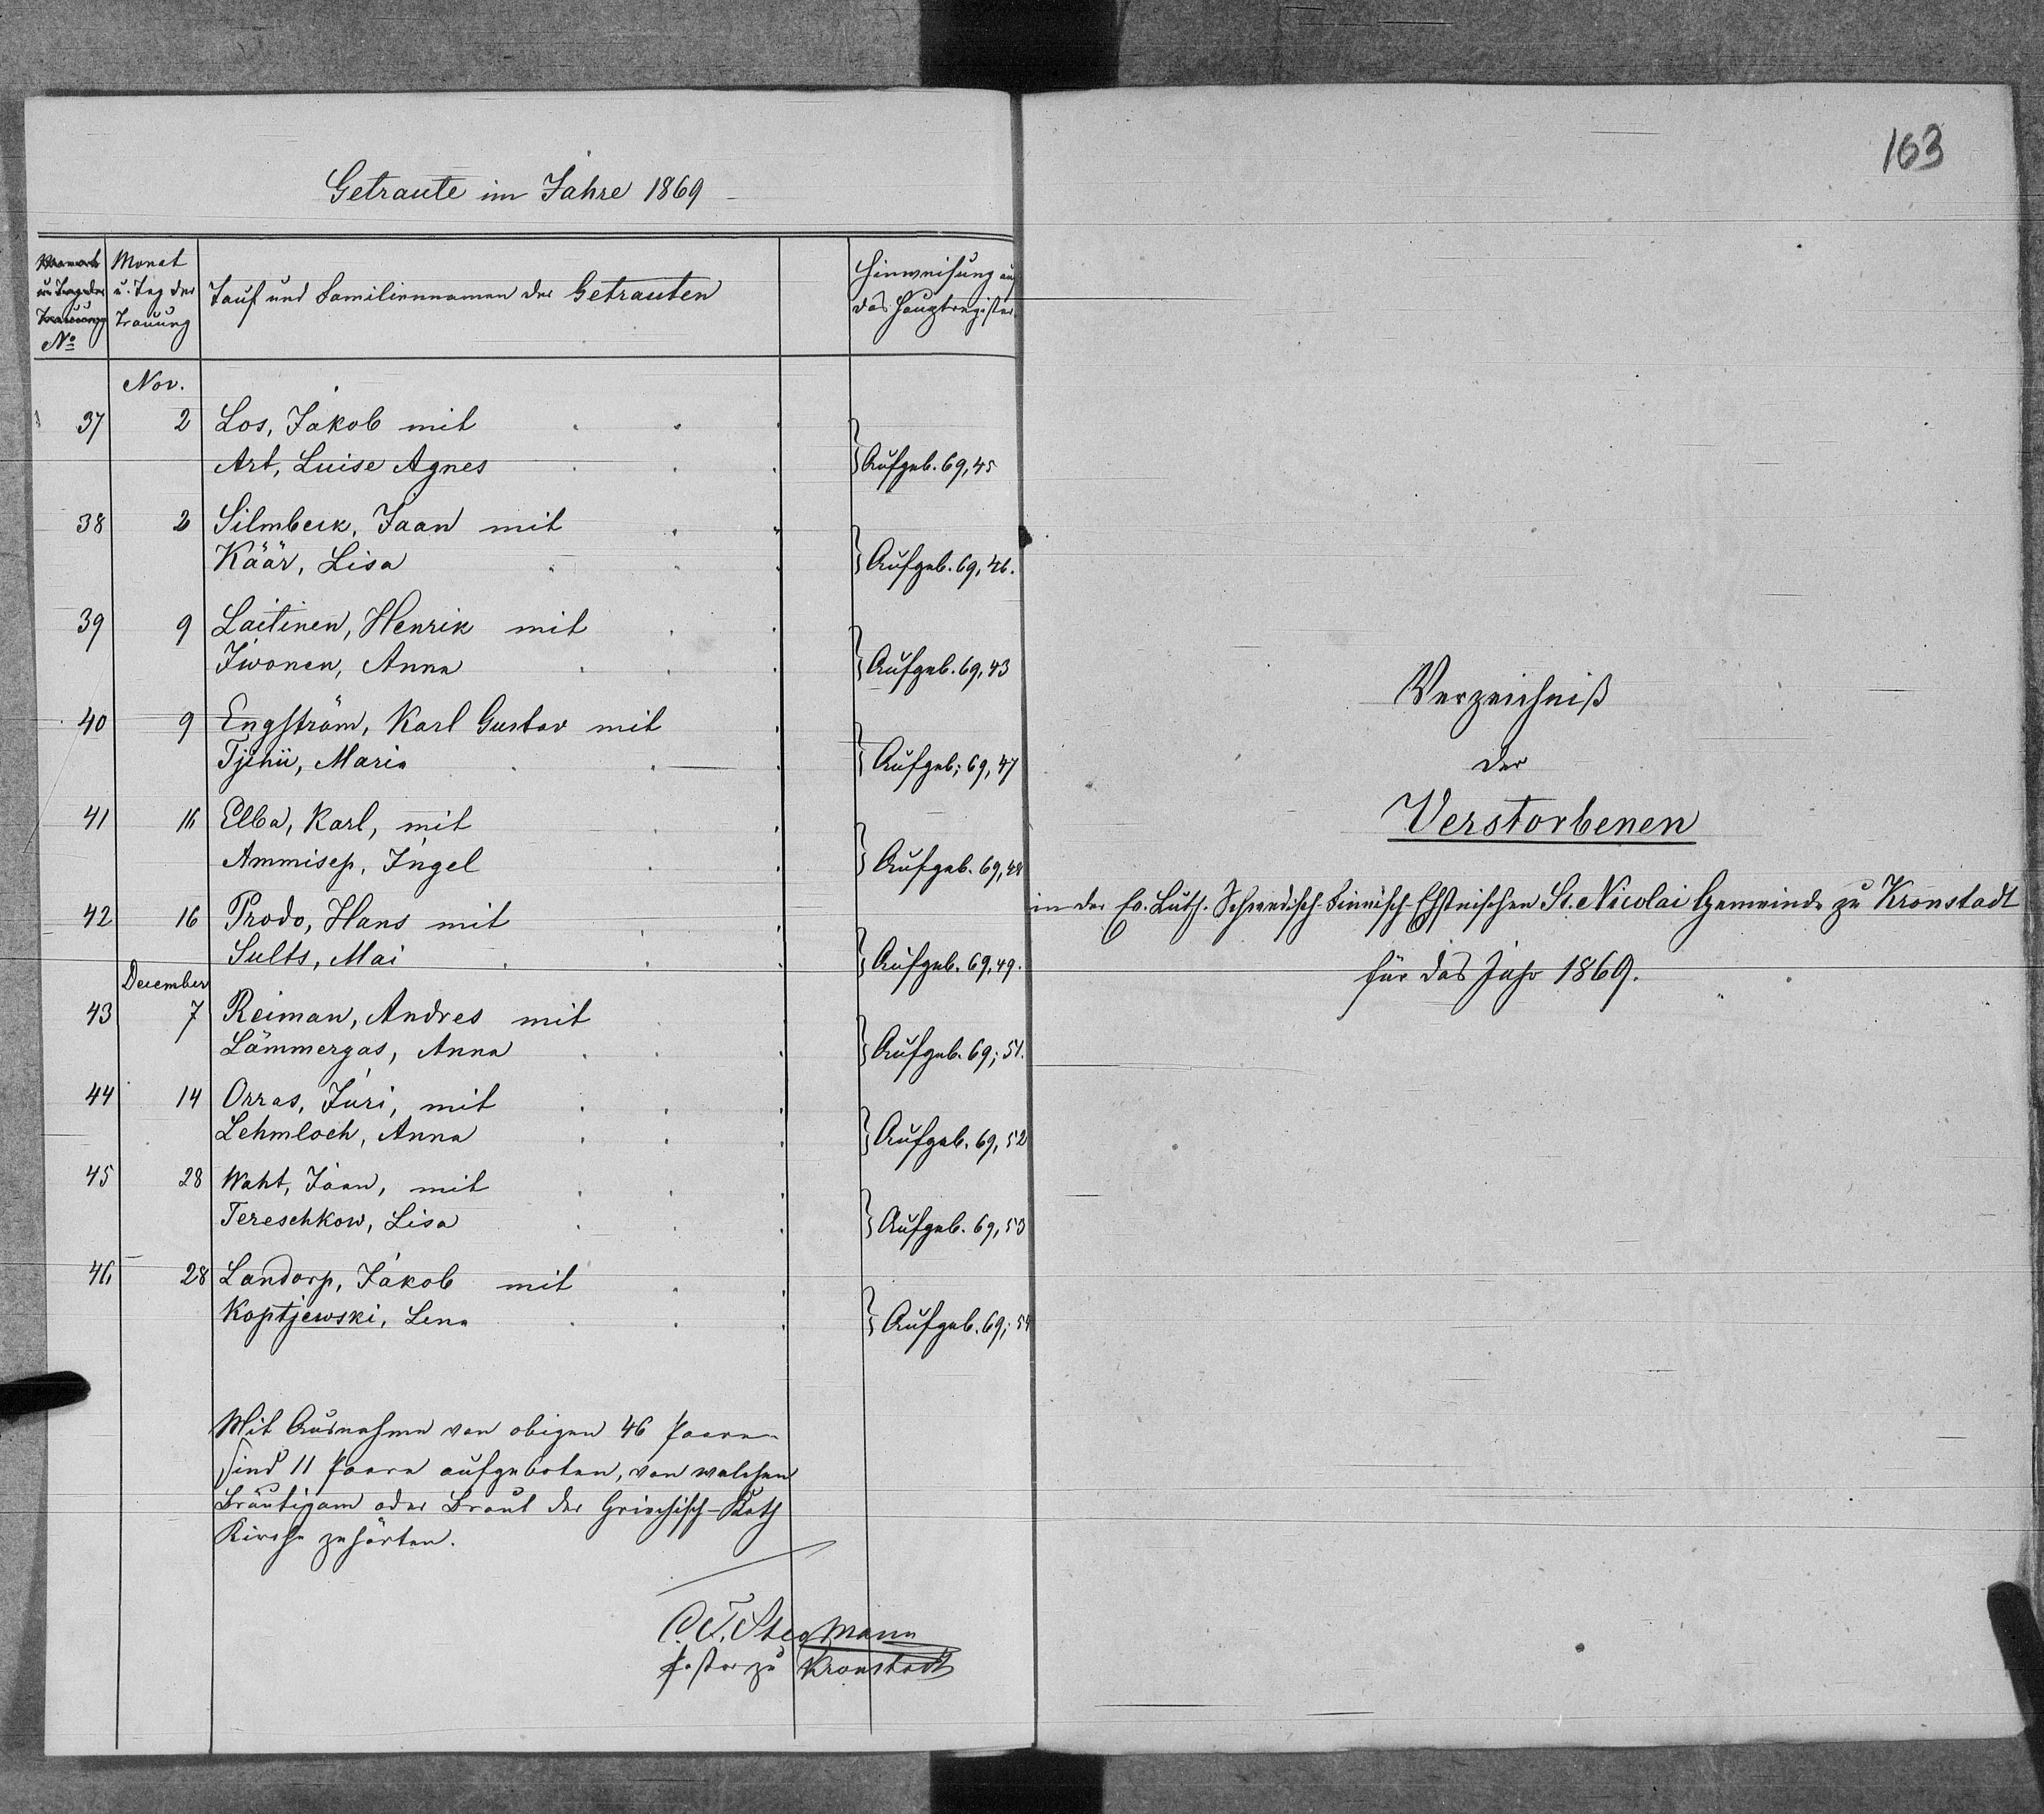 Getraute im Jahre 1869
Monat u. Tag der Trauung
No
Monat u. Tag der Trauung
Tauf und Familiennamen der Getrauten
Hinweisung auf das Hauptregister.
Nov.
37 2 Los, Jakob mit
Art, Luise Agnes } Aufgeb. 69, 45
38 2 Silmbeck, Jaan mit
Käär, Lisa } Aufgeb. 69, 46.
39 9 Laitinen, Henrik mit
Iwonen, Anna } Aufgeb. 69, 43
40 9 Engström, Karl Gustav mit
Maria } Aufgeb; 69, 47
41 16 Elba, Karl, mit
Ammisep, Ingel } Aufgeb. 69, 48
42 16 Prodo, Hans mit
Sults, Mai } Aufgeb. 69, 49.
December
43 7 Reiman, Andres mit
Lämmergas, Anna } Aufgeb. 69; 51.
44 14 Orras, Juri, mit
Lehmloch, Anna } Aufgeb. 69, 52
45 28 Waht, Jaan, mit
Tereschkow, Lisa } Aufgeb. 69, 53
46 28 Landorp, Jakob mit
Koptjewski, Lena } Aufgeb. 69; 54
Mit Ausnahme von obigen 46 Paaren
sind 11 Paare aufgeboten, von welchen
Bräutigam oder Braut der Griechisch-Kath
Kirche gehörten.
Pastor zu Kronstadt
163
Verzeichniß
der
Verstorbenen
in der Ev. Luth. Schwedisch-Finnisch-Ehstnischen St. Nicolai Gemeinde zu Kronstadt
für das Jahr 1869.